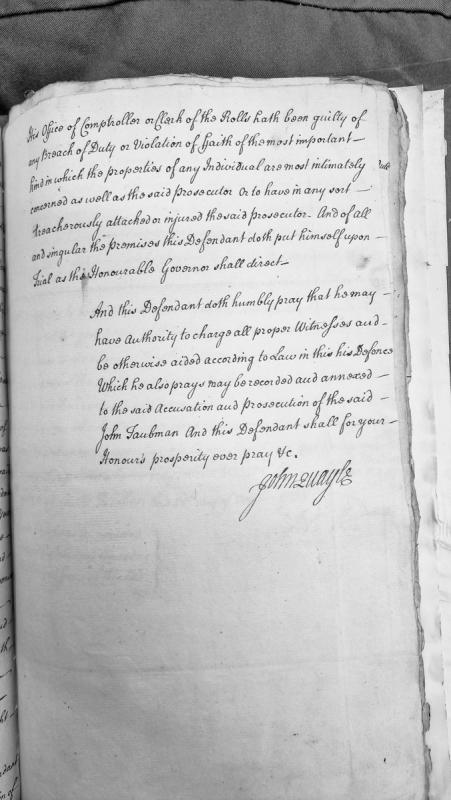 His Office of Comptroller or Clerk of the Rolls hath been guilty of
any Breach of Duty or Violation of Faith of the most important
kind in which the properties of any Individual are most intimately
concerned as well as the said Prosecutor Or to have in any sort
Treacherously attacked or injured the said prosecutor. And of all
and singular the Premises this Defendant doth put himself upon
Trial as the Honourable Governor shall direct
And this Defendant doth humbly pray that he may
have Authority to charge all proper Witnesses and
be otherwise aided according to Law in this his Defence
Which he also prays may be recorded and annexed
to the said Accusation and Prosecution of the said
John Taubman And this Defendant shall for your
Honour's prosperity ever pray &c.
John Quayle